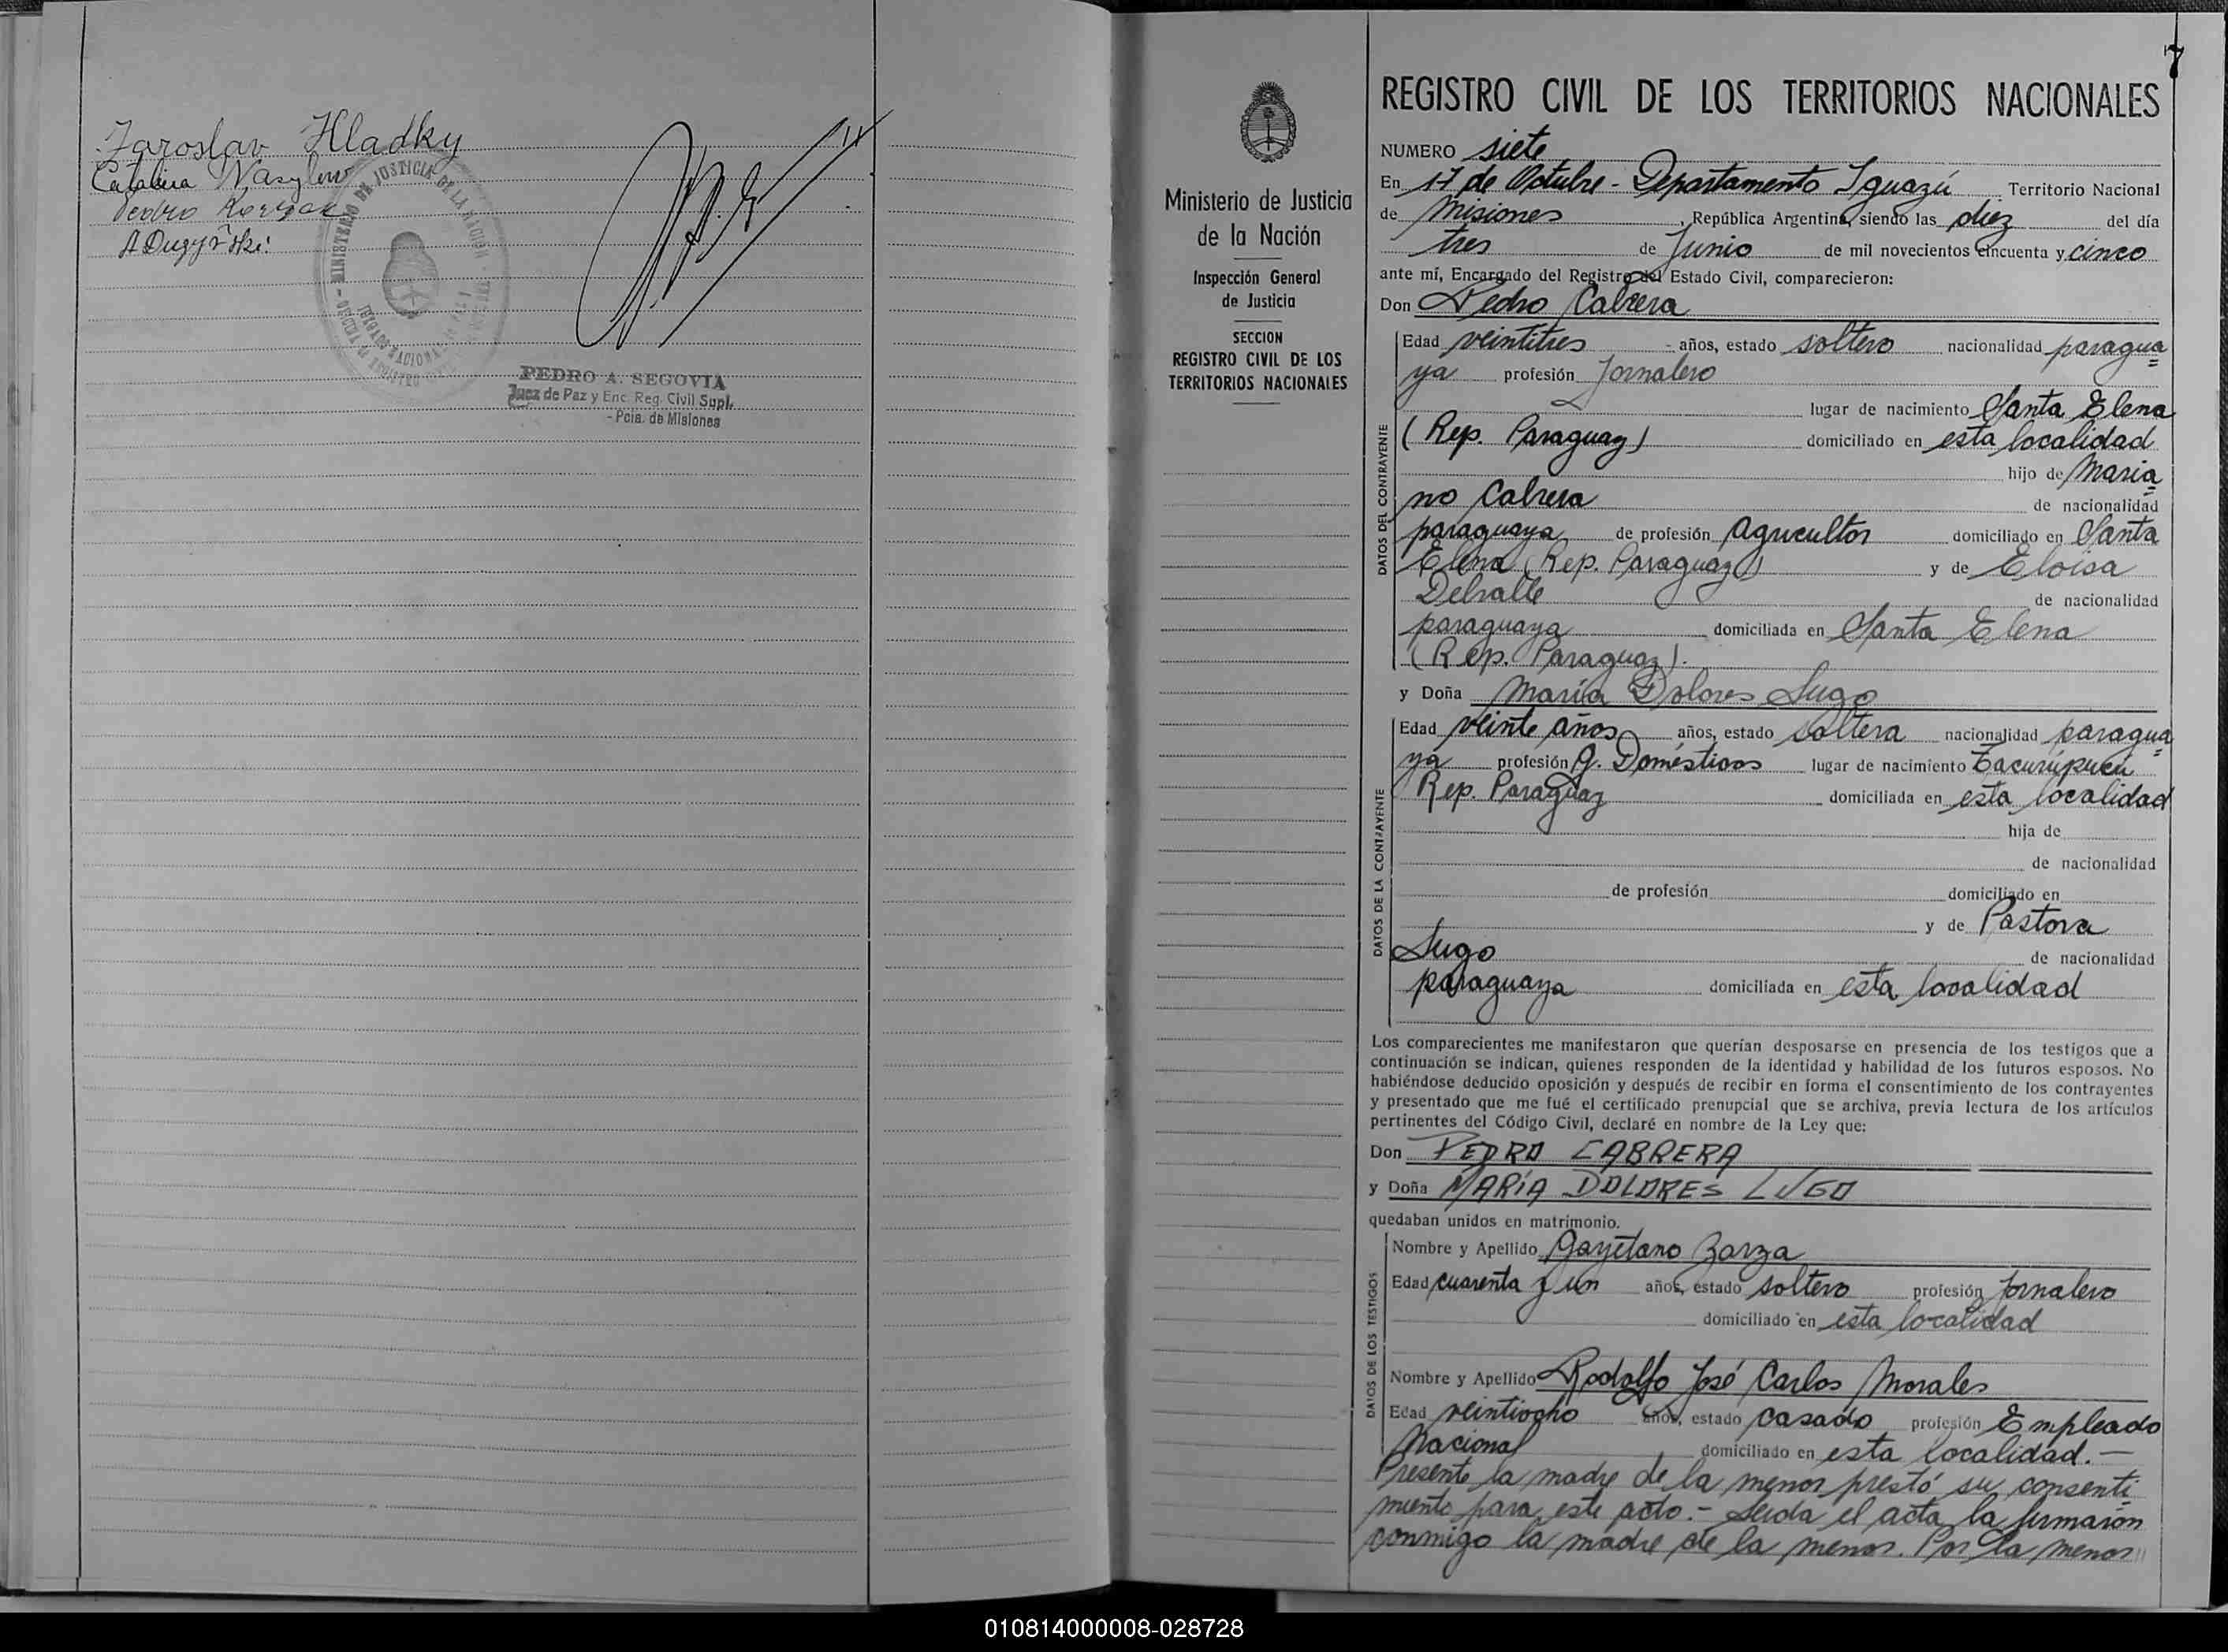 Jaroslav Hladky
Catalina Wasylow
Pedro Korzak
MINISTERIO DE JUSTICIA DE LA NACION
PEDRO A. SEGOVIA
Juez de Paz y Enc. Reg. Civil Supl.
- Pcia. de Misiones
7
Ministerio de Justicia
de la Nación
Inspección General
de Justicia
SECCION
REGISTRO CIVIL DE LOS
TERRITORIOS NACIONALES
REGISTRO CIVIL DE LOS TERRITORIOS NACIONALES
NUMERO siete
En 17 de Octubre - Departamento Iguazú Territorio Nacional
de Misiones, República Argentina, siendo las diez del día
tres de Junio de mil novecientos cincuenta y cinco
ante mí, Encargado del Registro del Estado Civil, comparecieron:
Don Pedro Cabrera
DATOS DEL CONTRAYENTE
Edad veintitres - años, estado soltero nacionalidad paragua=
ya profesión Jornalero
lugar de nacimiento Santa Elena
(Rep. Paraguay) domiciliado en esta localidad
hijo de Maria=
no Cabrera de nacionalidad
paraguaya de profesión Agricultor domiciliado en Santa
Elena (Rep. Paraguay) y de Eloisa
Delvalle de nacionalidad
paraguaya domiciliada en Santa Elena
(Rep. Paraguay).
y Doña María Dolores Lugo
DATOS DE LA CONTRAYENTE
Edad veinte años años, estado soltera nacionalidad paragua=
ya profesión Q. Domésticos lugar de nacimiento Tacurúpucú
Rep. Paraguay domiciliada en esta localidad
hija de
de nacionalidad
de profesión domiciliado en
y de Pastora
Lugo de nacionalidad
paraguaya domiciliada en esta localidad
Los comparecientes me manifestaron que querían desposarse en presencia de los testigos que a
continuación se indican, quienes responden de la identidad y habilidad de los futuros esposos. No
habiéndose deducido oposición y después de recibir en forma el consentimiento de los contrayentes
y presentado que me fué el certificado prenupcial que se archiva, previa lectura de los artículos
pertinentes del Código Civil, declaré en nombre de la Ley que:
Don PEDRO CABRERA
y Doña MARÍA DOLORES LUGO
quedaban unidos en matrimonio.
DATOS DE LOS TESTIGOS
Nombre y Apellido Gayetano Zarza
Edad cuarenta y un años, estado soltero profesión Jornalero
domiciliado en esta localidad
Nombre y Apellido Rodolfo José Carlos Morales
Edad veintiocho años, estado casado profesión Empleado
Nacional domiciliado en esta localidad. -
Presente la madre de la menor prestó su consenti=
miento para este acto. - Leida el acta la firmaron
conmigo la madre de la menor. Por la menor
010814000008-028728